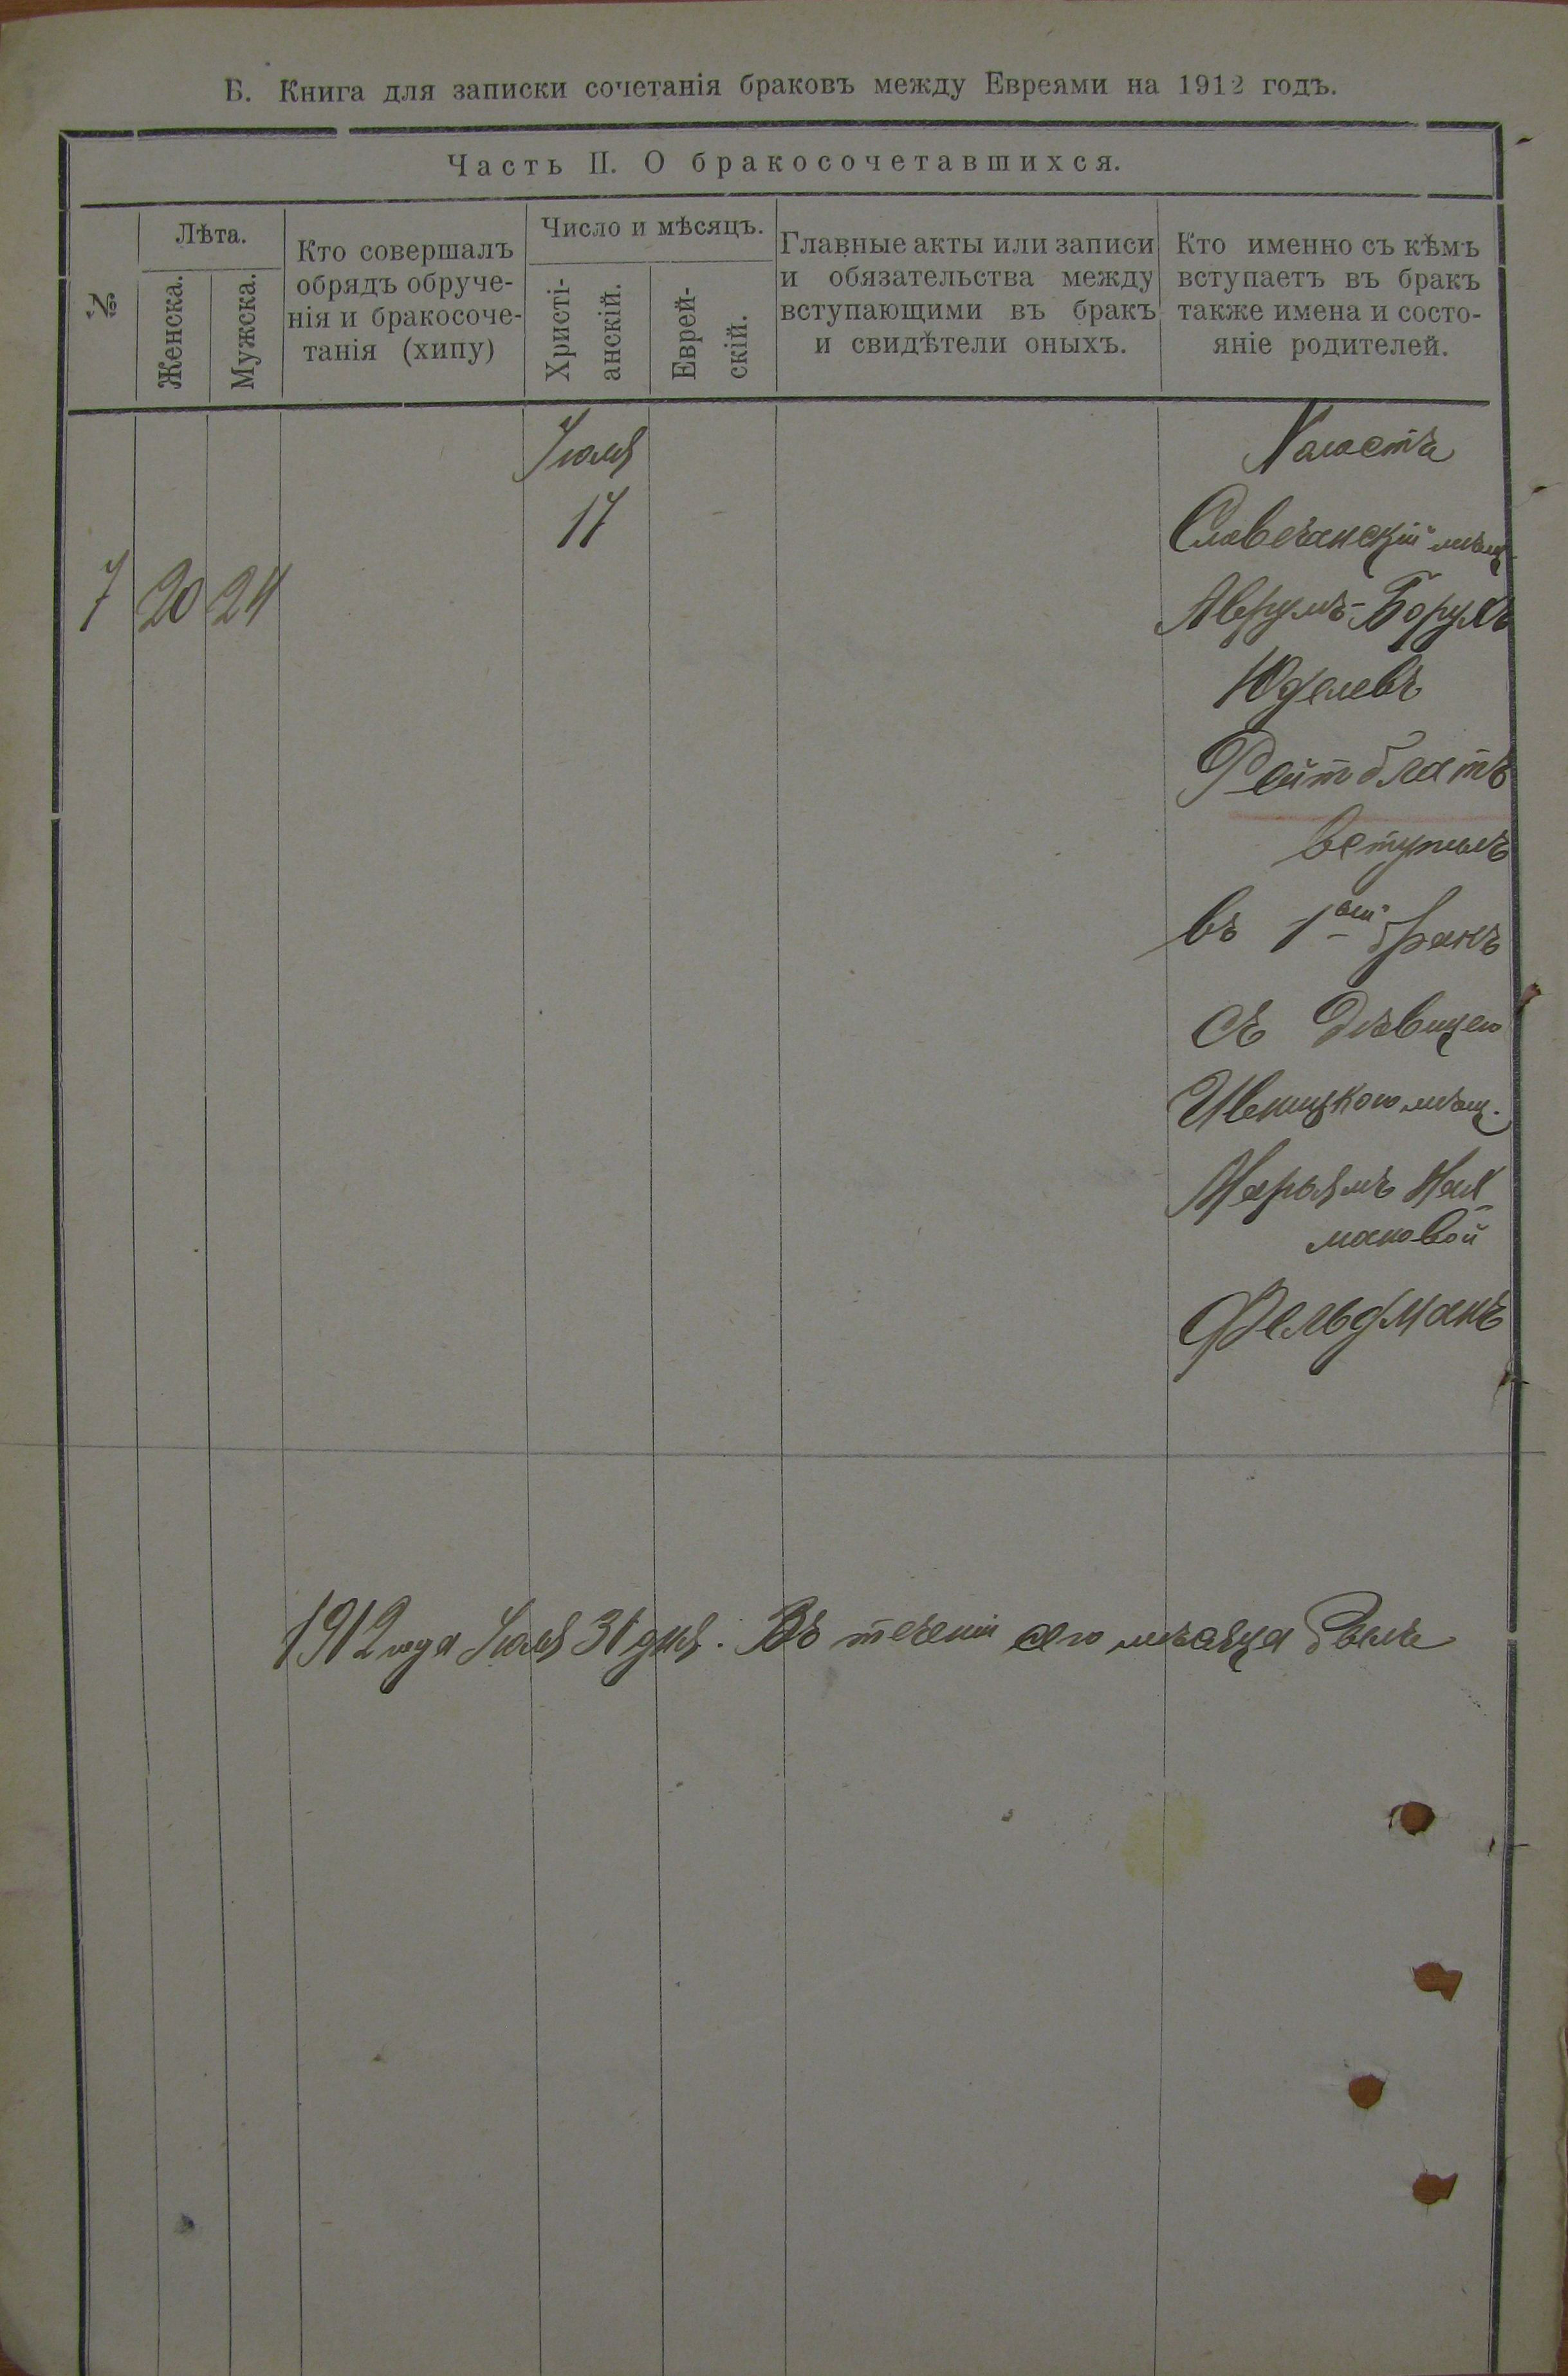 Б. Книга для записки сочетанія браковъ между Евреями на 1912 годъ.
Часть II. О бракосочетавшихся.
№
Лѣта.
Женска.
Мужска.
Кто совершалъ
обрядъ обруче-
нія и бракосоче-
танія (хипу)
Число и мѣсяцъ.
Христі-
анскій.
Еврей-
скій.
Главные акты или записи
и обязательства между
вступающими въ бракъ
и свидѣтели оныхъ.
Кто именно съ кѣмъ
вступаетъ въ бракъ
также имена и состо-
яніе родителей.
7
20
24
Іюля
17
Холостъ
Словечанскій мѣщ.
Аврумъ-Борухъ
Юделевъ
Ройтблатъ
вступилъ
въ 1ый бракъ
съ дѣвицею
Ивницкою мѣщ.
Марьямъ Нах-
мановой
Фельдманъ
1912 года Іюля 31 дня. Въ теченіи сего мѣсяца былъ